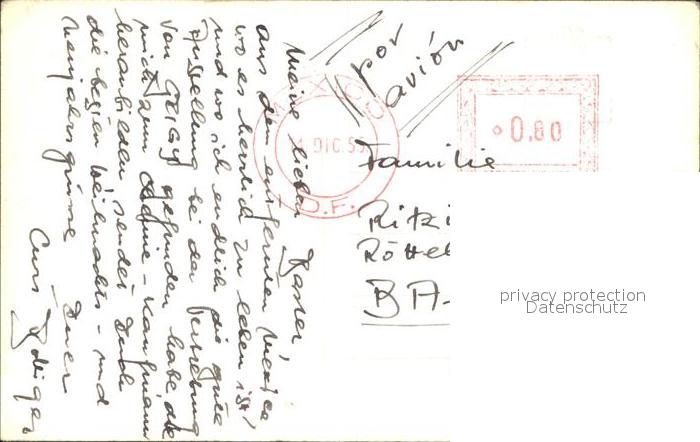 Meine lieben Basler,
aus dem entfernten Mexico
wo es herrlich zu leben ist,
und wo ich endlich die gute
Anstellung bei der Vertretung
von Geigy gefunden habe, die
mich zum Kaufmann
heranbilden, sendet Euch
die besten Weihnachts- und
Neujahrsgrüsse Euer
por
avión
MEXICO
DIC.55
D.F.
0.80
Familie
Ritzi
Röttel
BA-
privacy protection
Datenschutz